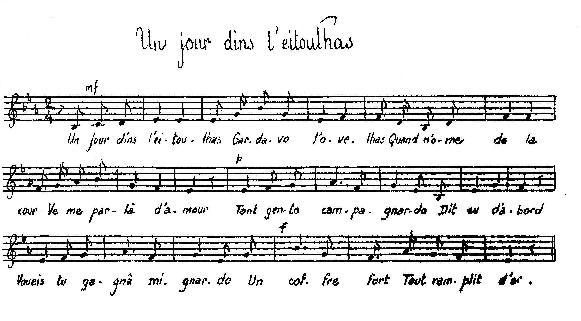 Un jour dins l'eitoulhas
mf
Un jour dins l'ei-tou-lhas Gar-da-vo l'o-ve-lhas Quand n'o-me de la
p
cour Ve me par-là d'a-mour Tant gen-to cam-pa-gnar-do Dit eu d'à-bord
f
Voueis tu ga-gnâ mi-gnar-do Un cof-fre fort Tout ram-plit d'or.